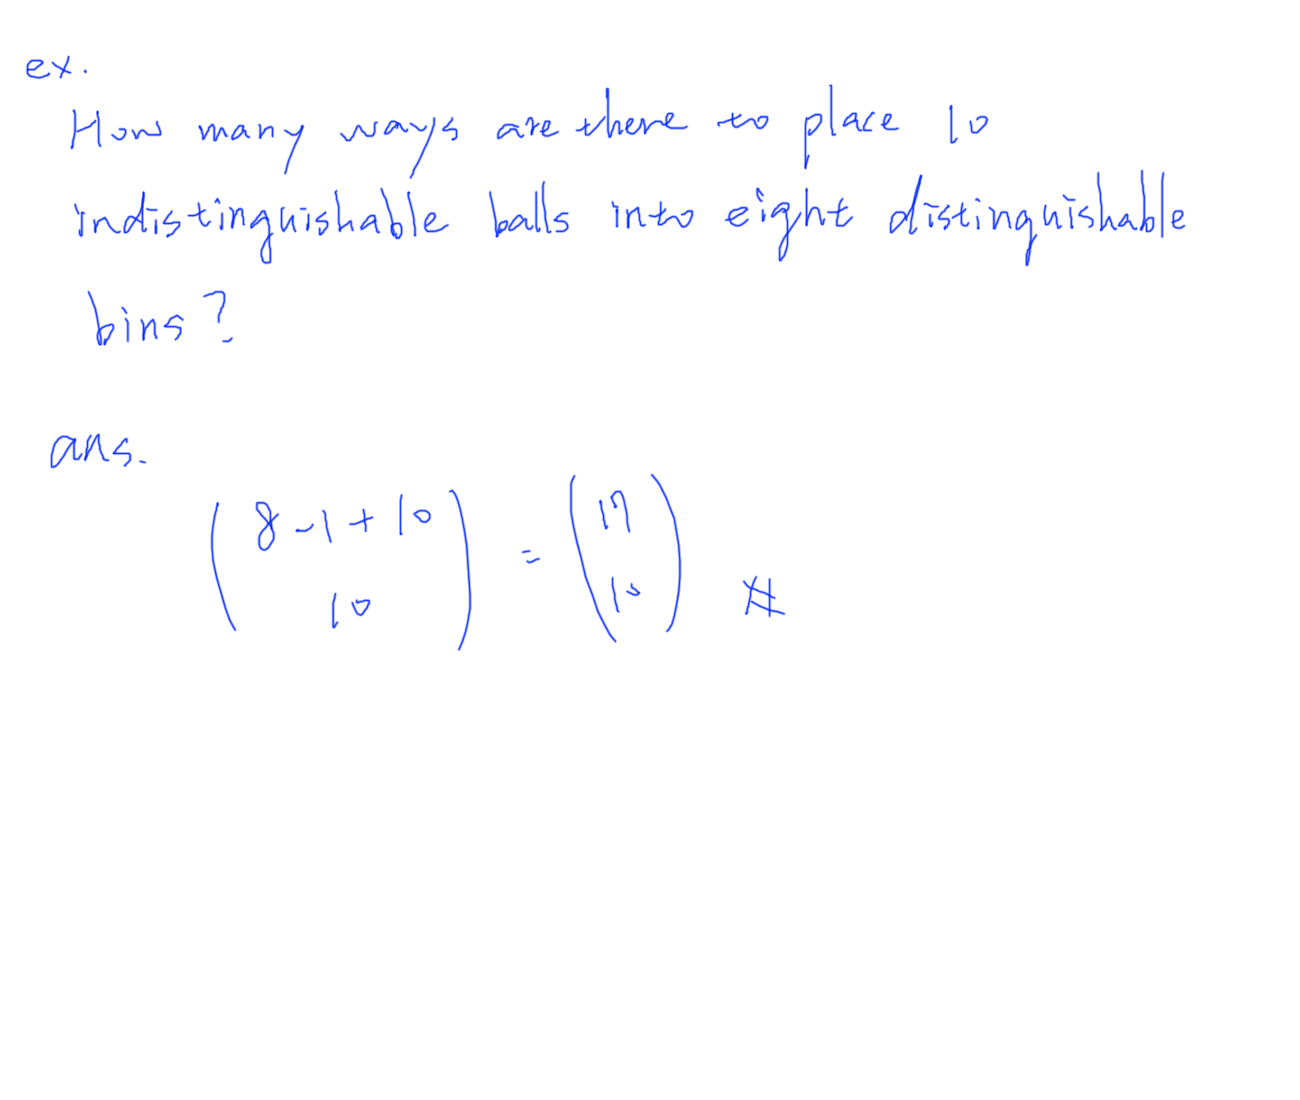 ex.
How many ways are there to place 10
indistinguishable balls into eight distinguishable
bins?
ans.
(8-1+10
10) = (17
10) #